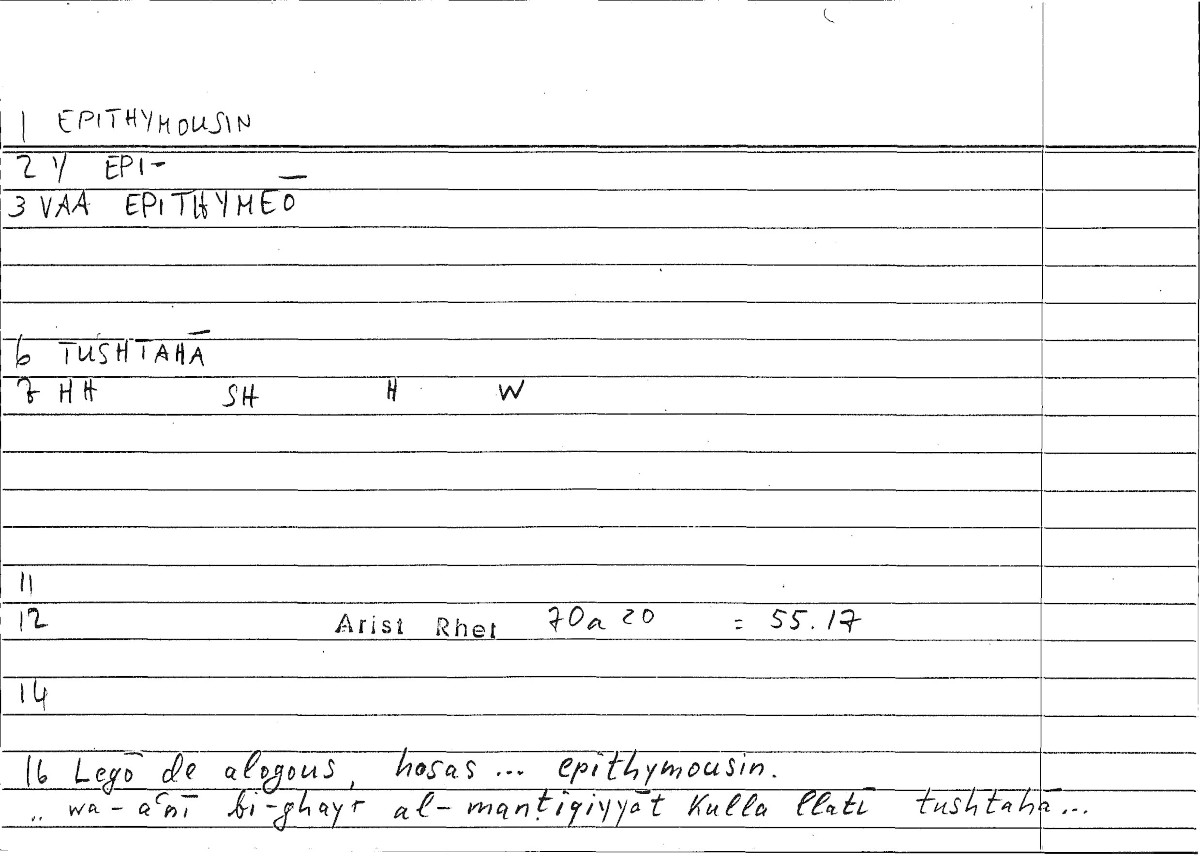 1 EPITHYMOUSIN
2 Y EPI-
3 VAA EPITHYMEŌ
6 TUSHTAHĀ
7 HH SH H W
11
12 Arist Rhet 70a 20 = 55.17
14
16 Legō de alogous, hosas ... epithymousin.
.. wa-aʿnī bi-ghayr al-manṭiqiyyāt kulla llatī tushtahā...